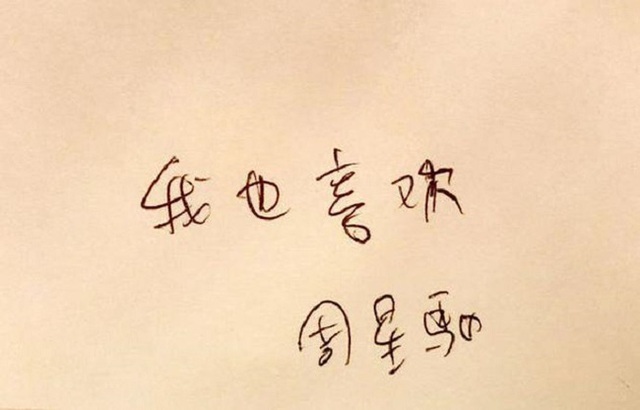 我也喜欢
周星馳